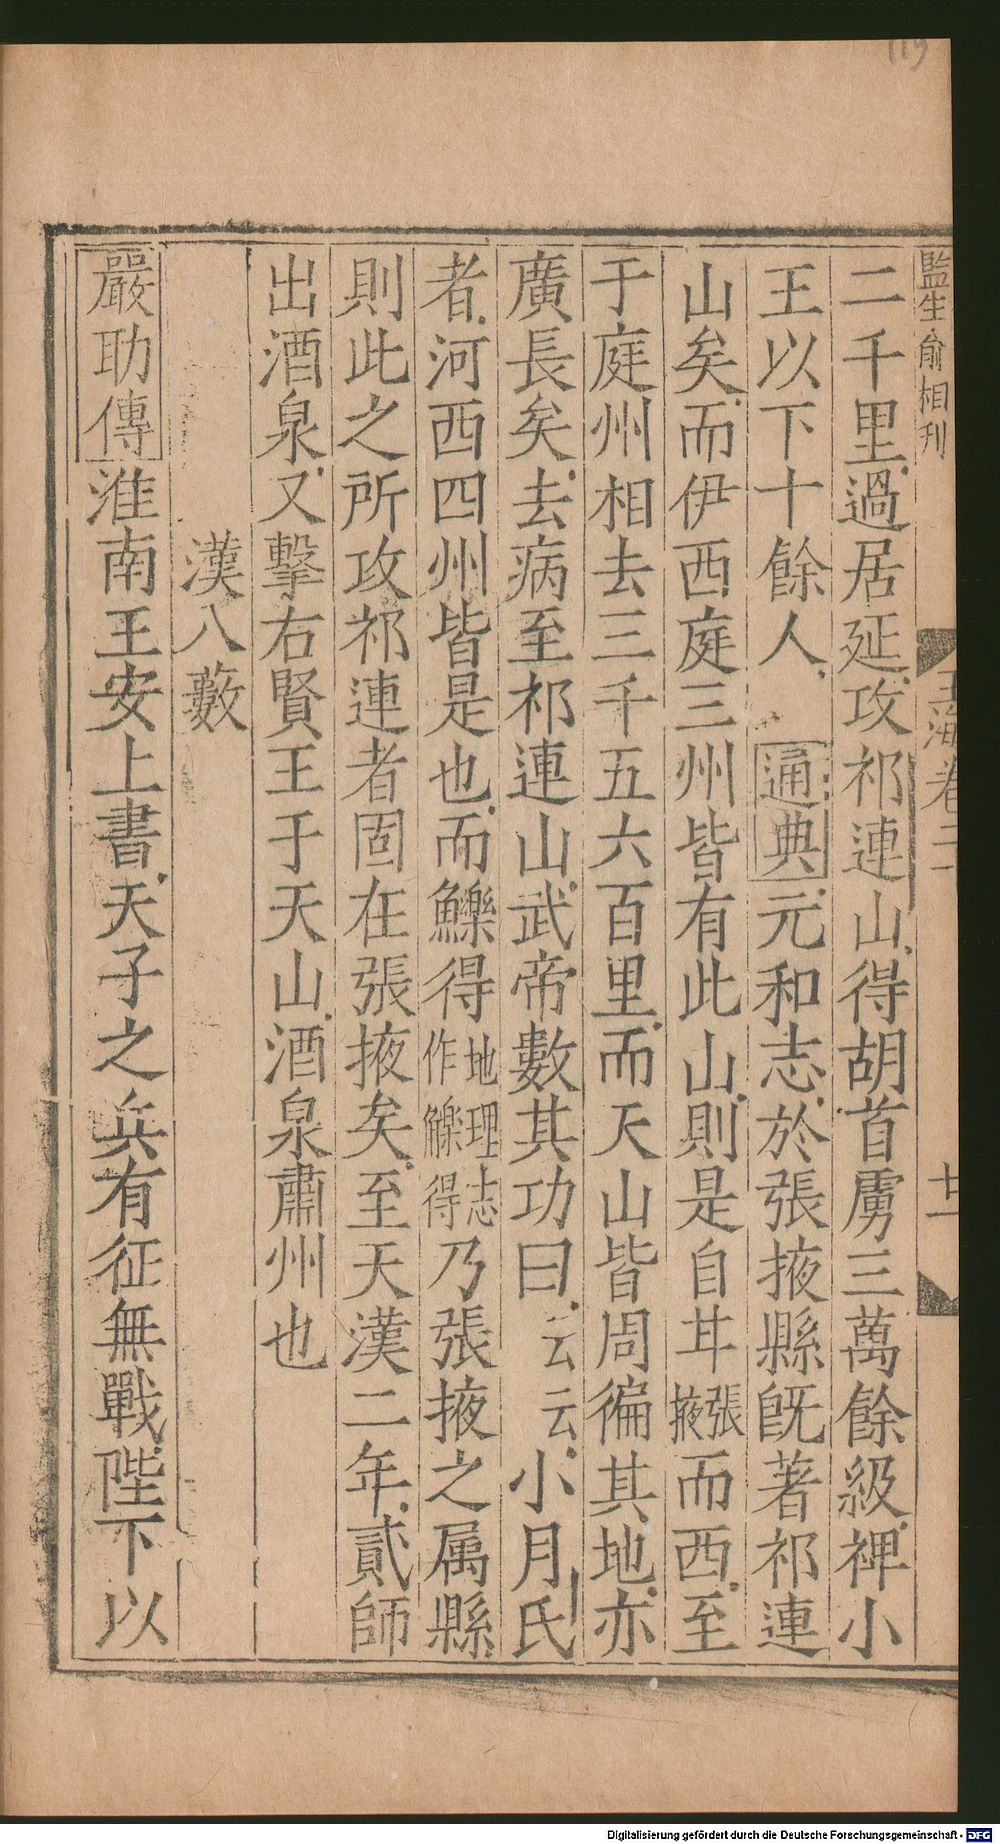 監生俞相刋
玉海卷二十
廿一
二千里過居延攻祁連山得胡首虜三萬餘級裨小
王以下十餘人通典元和志於張掖縣旣著祁連
山矣而伊西庭三州皆有此山則是自甘張掖而西至
于庭州相去三千五六百里而天山皆周徧其地亦
廣長矣去病至祁連山武帝數其功曰云云小月氏
者河西四州皆是也而鱳得地理志作觻得乃張掖之属縣
則此之所攻祁連者固在張掖矣至天漢二年貳師
出酒泉又擊右賢王于天山酒泉肅州也
漢八藪
嚴助傳淮南王安上書天子之兵有征無戰陛下以
119
Digitalisierung gefördert durch die Deutsche Forschungsgemeinschaft - DFG